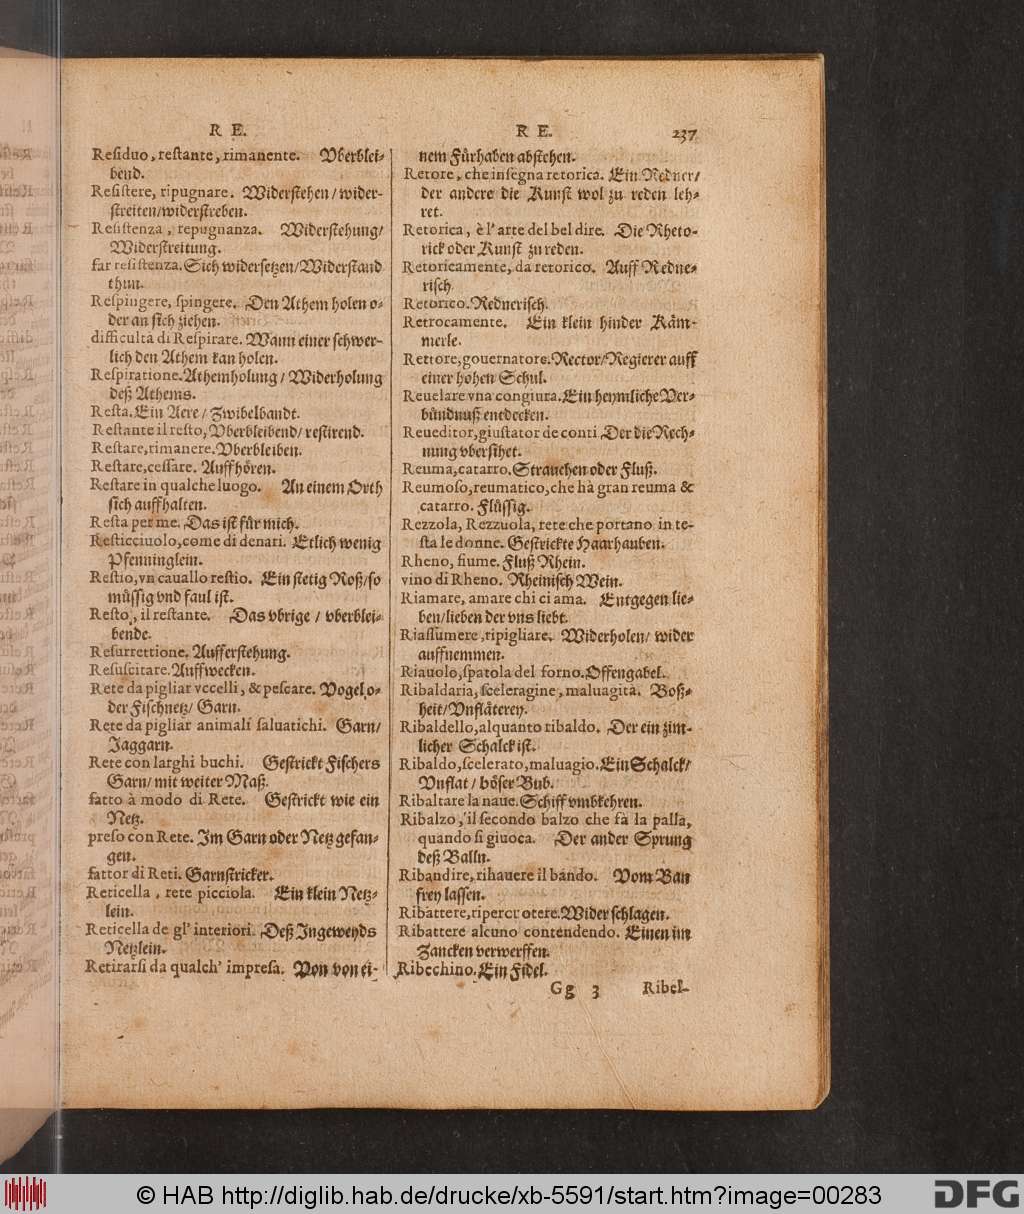 R E.
Reſiduo, reſtante, rimanente. Vberblei-
bend.
Reſiſtere, ripugnare. Widerſtehen/wider-
ſtreiten/widerſtreben.
Reſiſtenza, repugnanza. Widerſtehung/
Widerſtreitung.
far reſiſtenza. Sich widerſetzen/Widerſtand
thun.
Reſpingere, ſpingere. Den Athem holen o-
der an ſich ziehen.
difficultà di Reſpirare. Wann einer ſchwer-
lich den Athem kan holen.
Reſpiratione. Athemholung/Widerholung
deß Athems.
Reſta. Ein Aere/Zwibelbandt.
Reſtante il reſto, Vberbleibend/reſtirend.
Reſtare, rimanere. Vberbleiben.
Reſtare, ceſſare. Auffhören.
Reſtare in qualche luogo. An einem Orth
ſich auffhalten.
Reſta per me. Das iſt für mich.
Reſticciuolo, come di denari. Etlich wenig
Pfenninglein.
Reſtio, vn cauallo reſtio. Ein ſtetig Roß/ſo
müſſig vnd faul iſt.
Reſto, il reſtante. Das vbrige/vberblei-
bende.
Reſurrettione. Aufferſtehung.
Reſuſcitare. Auffwecken.
Rete da pigliar vccelli, & peſcare. Vogel o-
der Fiſchnetz/Garn.
Rete da pigliar animali ſaluatichi. Garn/
Jaggarn.
Rete con larghi buchi. Geſtrickt Fiſchers
Garn/mit weiter Maß.
fatto à modo di Rete. Geſtrickt wie ein
Netz.
preſo con Rete. Im Garn oder Netz gefan-
gen.
fattor di Reti. Garnſtricker.
Reticella, rete picciola. Ein klein Netz-
lein.
Reticella de gl' interiori. Deß Ingeweyds
Netzlein.
Retirarſi da qualch' impreſa. Von von ei-
R E. 237
nem Fürhaben abſtehen.
Retore, che inſegna retorica. Ein Redner/
der andere die Kunſt wol zu reden leh-
ret.
Retorica, è l'arte del bel dire. Die Rheto-
rick oder Kunſt zu reden.
Retoricamente, da retorico. Auff Redne-
riſch
Retorico. Redneriſch.
Retrocamente. Ein klein hinder Käm-
merle.
Rettore, gouernatore. Rector/Regierer auff
einer hohen Schul.
Reuelare vna congiura. Ein heymliche Ver-
bündnuß entdecken.
Reueditor, giuſtator de conti. Der die Rech-
nung vberſihet.
Reuma, catarro. Strauchen oder Fluß.
Reumoſo, reumatico, che hà gran reuma &
catarro. Flüſſig.
Rezzola, Rezzuola, rete che portano in te-
ſta le donne. Geſtrickte Haarhauben.
Rheno, fiume. Fluß Rhein.
vino di Rheno. Rheiniſch Wein.
Riamare, amare chi ci ama. Entgegen lie-
ben/lieben der vns liebt.
Riaſſumere, ripigliare. Widerholen/wider
auffnemmen.
Riauolo, ſpatola del forno. Offengabel.
Ribaldaria, ſceleragine, maluagità. Boß-
heit/Vnfläterey.
Ribaldello, alquanto ribaldo. Der ein zim-
licher Schalck iſt.
Ribaldo, ſcelerato, maluagio. Ein Schalck/
Vnflat/böſer Bub.
Ribaltare la naue. Schiff vmbkehren.
Ribalzo, il ſecondo balzo che fà la palla,
quando ſi giuoca. Der ander Sprung
deß Balln.
Ribandire, rihauere il bando. Vom Ban
frey laſſen.
Ribattere, ripercuotere. Wider ſchlagen.
Ribattere alcuno contendendo. Einen im
Zancken verwerffen.
Ribechino. Ein Fidel.
Gg 3 Ribel-
© HAB http://diglib.hab.de/drucke/xb-5591/start.htm?image=00283
DFG